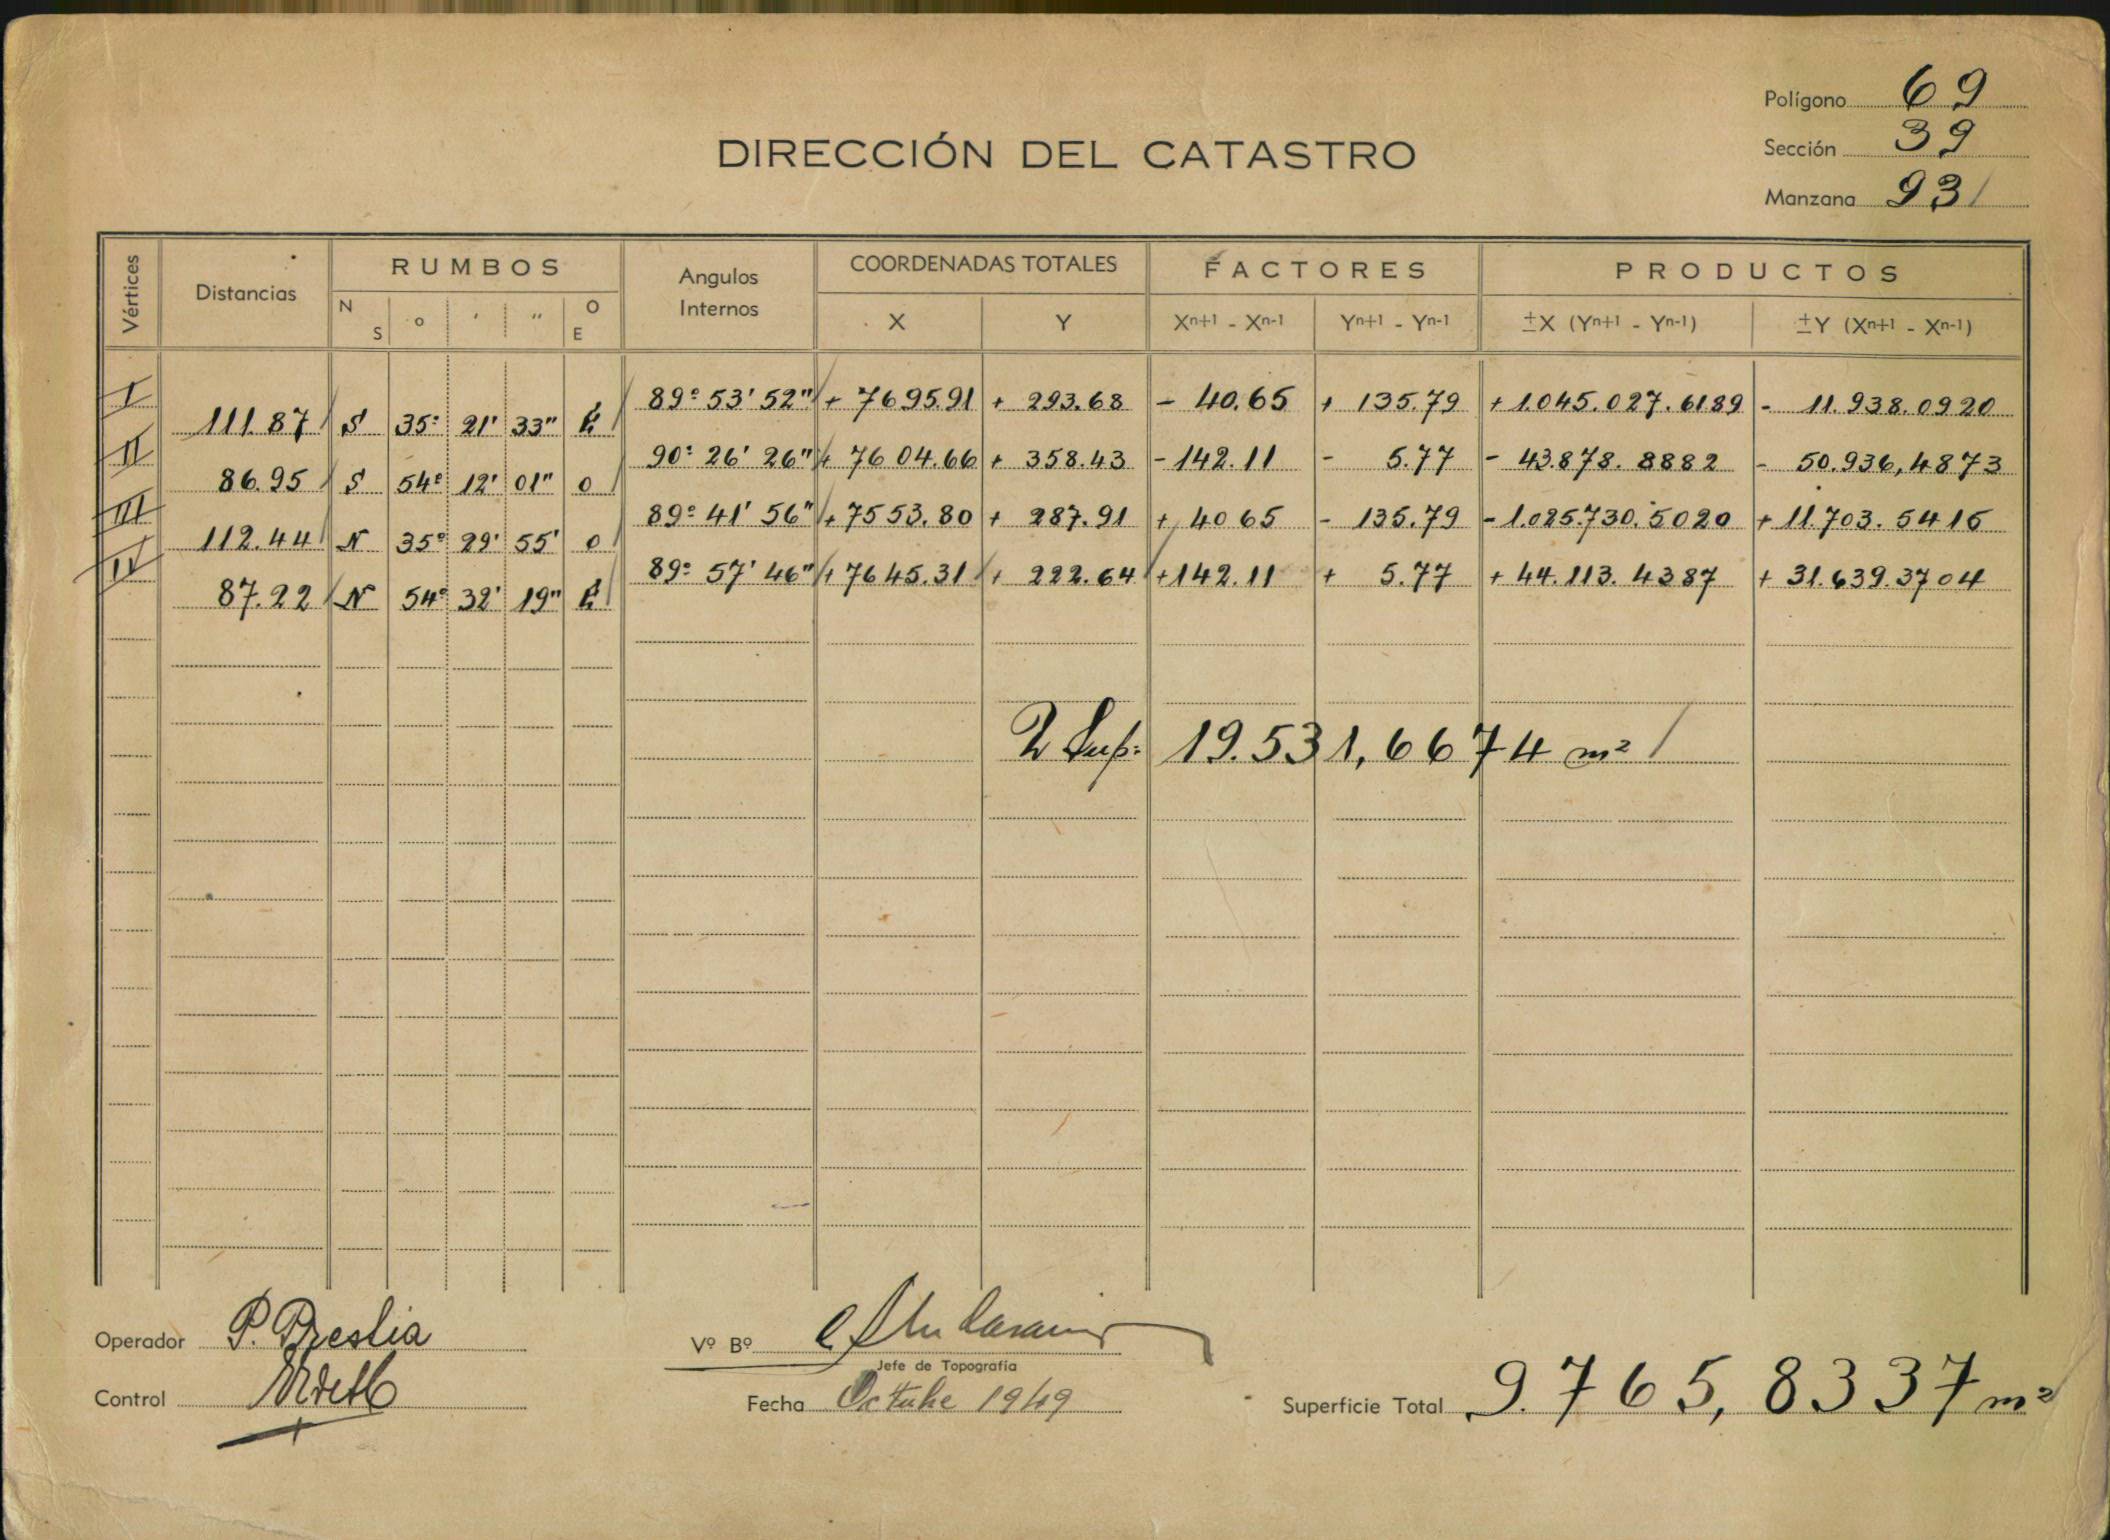 Polígono 69
DIRECCIÓN DEL CATASTRO
Sección 39
Manzana 931
Vértices Distancias RUMBOS Angulos Internos COORDENADAS TOTALES FACTORES PRODUCTOS
N S ° ' " O E X Y Xn+1 - Xn-1 Yn+1 - Yn-1 ±X (Yn+1 - Yn-1) ±Y (Xn+1 - Xn-1)
I 89° 53' 52" + 7695.91 + 293.68 - 40.65 + 135.79 + 1.045.027.6189 - 11.938.0920
111.87 S 35° 21' 33" E
II 90° 26' 26" + 7604.66 + 358.43 - 142.11 - 5.77 - 43.878.8882 - 50.936,4873
86.95 S 54° 12' 01" O
III 89° 41' 56" + 7553.80 + 287.91 + 40 65 - 135.79 - 1.025.730.5020 + 11.703.5415
112.44 N 35° 29' 55' O
IV 89° 57' 46" + 7645.31 + 222.64 + 142.11 + 5.77 + 44.113.4387 + 31.639.3704
87.22 N 54° 32' 19" E
2 Sup: 19.531,6674 m²
Operador P. Preslia
Vº Bº
Jefe de Topografía
Control
Fecha Octubre 1949
Superficie Total 9.765,8337 m²